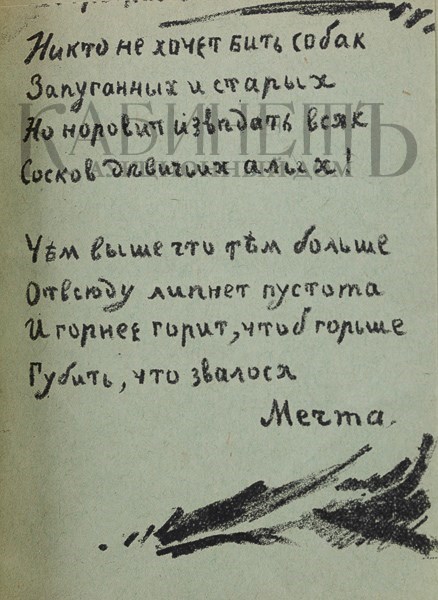 Никто не хочет бить собак
Запуганных и старых
Но норовит изведать всяк
Сосков девичьих алых!
КАБИНЕТЪ
АУКЦИОННЫЙ ДОМ
Чѣм выше что тѣм больше
Отвсюду липнет пустота
И горнее горит, чтоб горше
Губить, что звалося
Мечта.